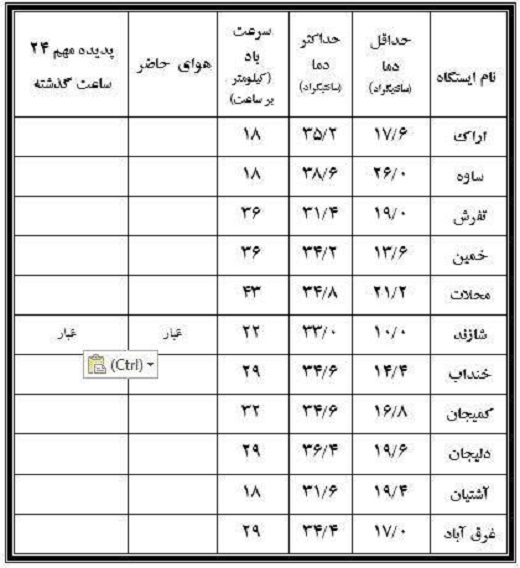 نام ایستگاه	حداقل دما (سانتیگراد)	حداکثر دما (سانتیگراد)	سرعت باد (کیلومتر بر ساعت)	هوای حاضر	پدیده مهم ۲۴ ساعت گذشته
اراک	۱۷/۶	۳۵/۲	۱۸
ساوه	۲۶/۰	۳۸/۶	۱۸
تفرش	۱۹/۰	۳۱/۴	۳۶
خمین	۱۳/۶	۳۴/۲	۳۶
محلات	۲۱/۲	۳۴/۸	۴۳
شازند	۱۰/۰	۳۳/۰	۲۲	غبار	غبار
(Ctrl)
خنداب	۱۴/۴	۳۴/۶	۲۹
کمیجان	۱۶/۸	۳۴/۶	۳۲
دلیجان	۱۹/۶	۳۶/۴	۲۹
آشتیان	۱۹/۴	۳۱/۶	۱۸
غرق آباد	۱۷/۰	۳۴/۴	۲۹